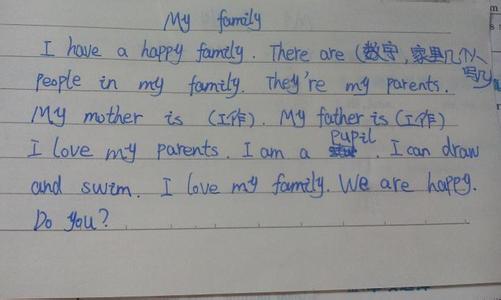 My family
I have a happy family. There are (数字, 家里几个人写几)
people in my family. They're my parents.
My mother is (工作). My father is (工作)
I love my parents. I am a pupil. I can draw
and swim. I love my family. We are happy.
Do you?